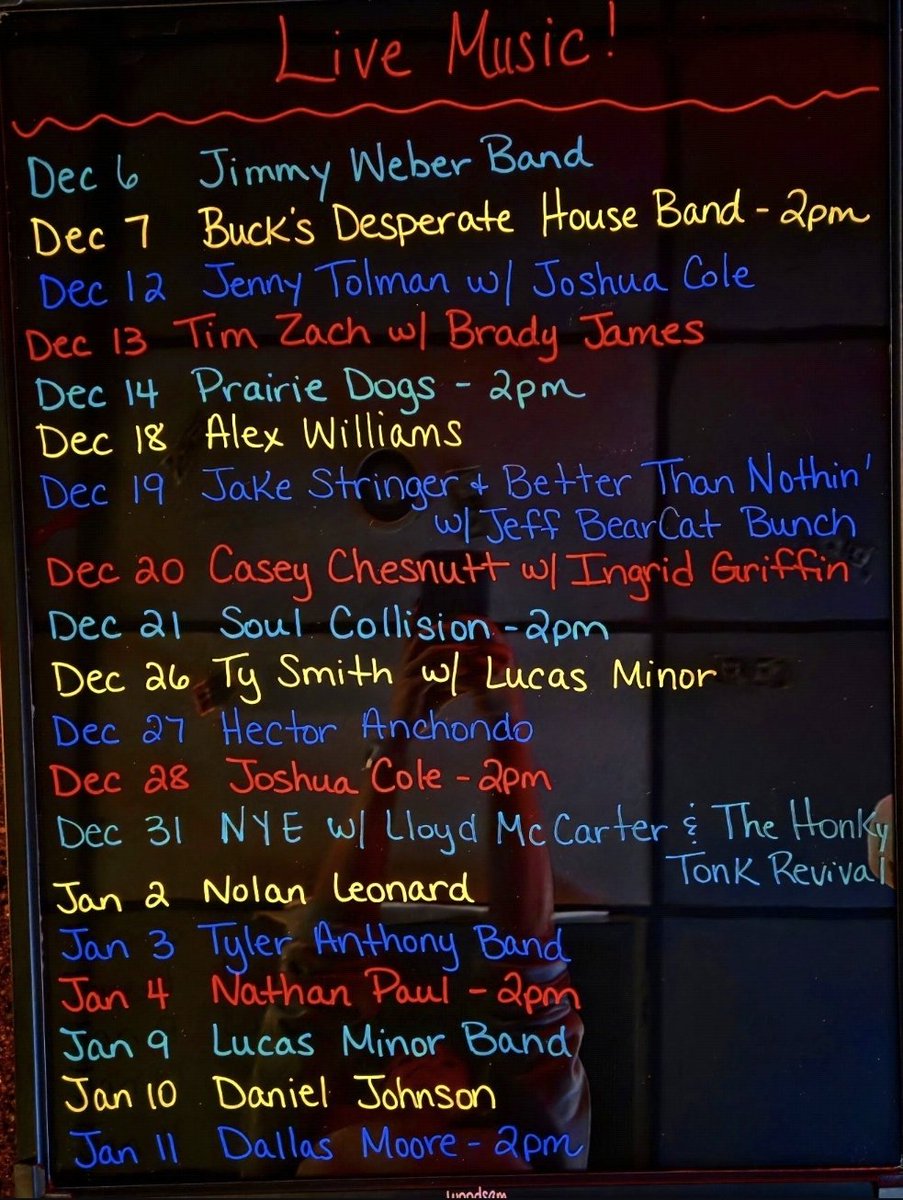 Live Music!
Dec 6 Jimmy Weber Band
Dec 7 Buck's Desperate House Band - 2pm
Dec 12 Jenny Tolman w/ Joshua Cole
Dec 13 Tim Zach w/ Brady James
Dec 14 Prairie Dogs - 2pm
Dec 18 Alex Williams
Dec 19 Jake Stringer + Better Than Nothin'
w/ Jeff BearCat Bunch
Dec 20 Casey Chesnutt w/ Ingrid Griffin
Dec 21 Soul Collision - 2pm
Dec 26 Ty Smith w/ Lucas Minor
Dec 27 Hector Anchondo
Dec 28 Joshua Cole - 2pm
Dec 31 NYE w/ Lloyd McCarter & The Honky
Tonk Revival
Jan 2 Nolan Leonard
Jan 3 Tyler Anthony Band
Jan 4 Nathan Paul - 2pm
Jan 9 Lucas Minor Band
Jan 10 Daniel Johnson
Jan 11 Dallas Moore - 2pm